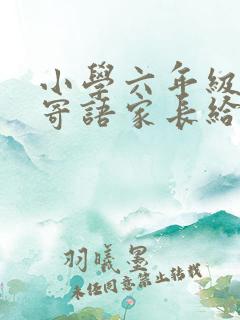 小學六年級
寄語家長給
羽曦墨
未經同意禁止轉載